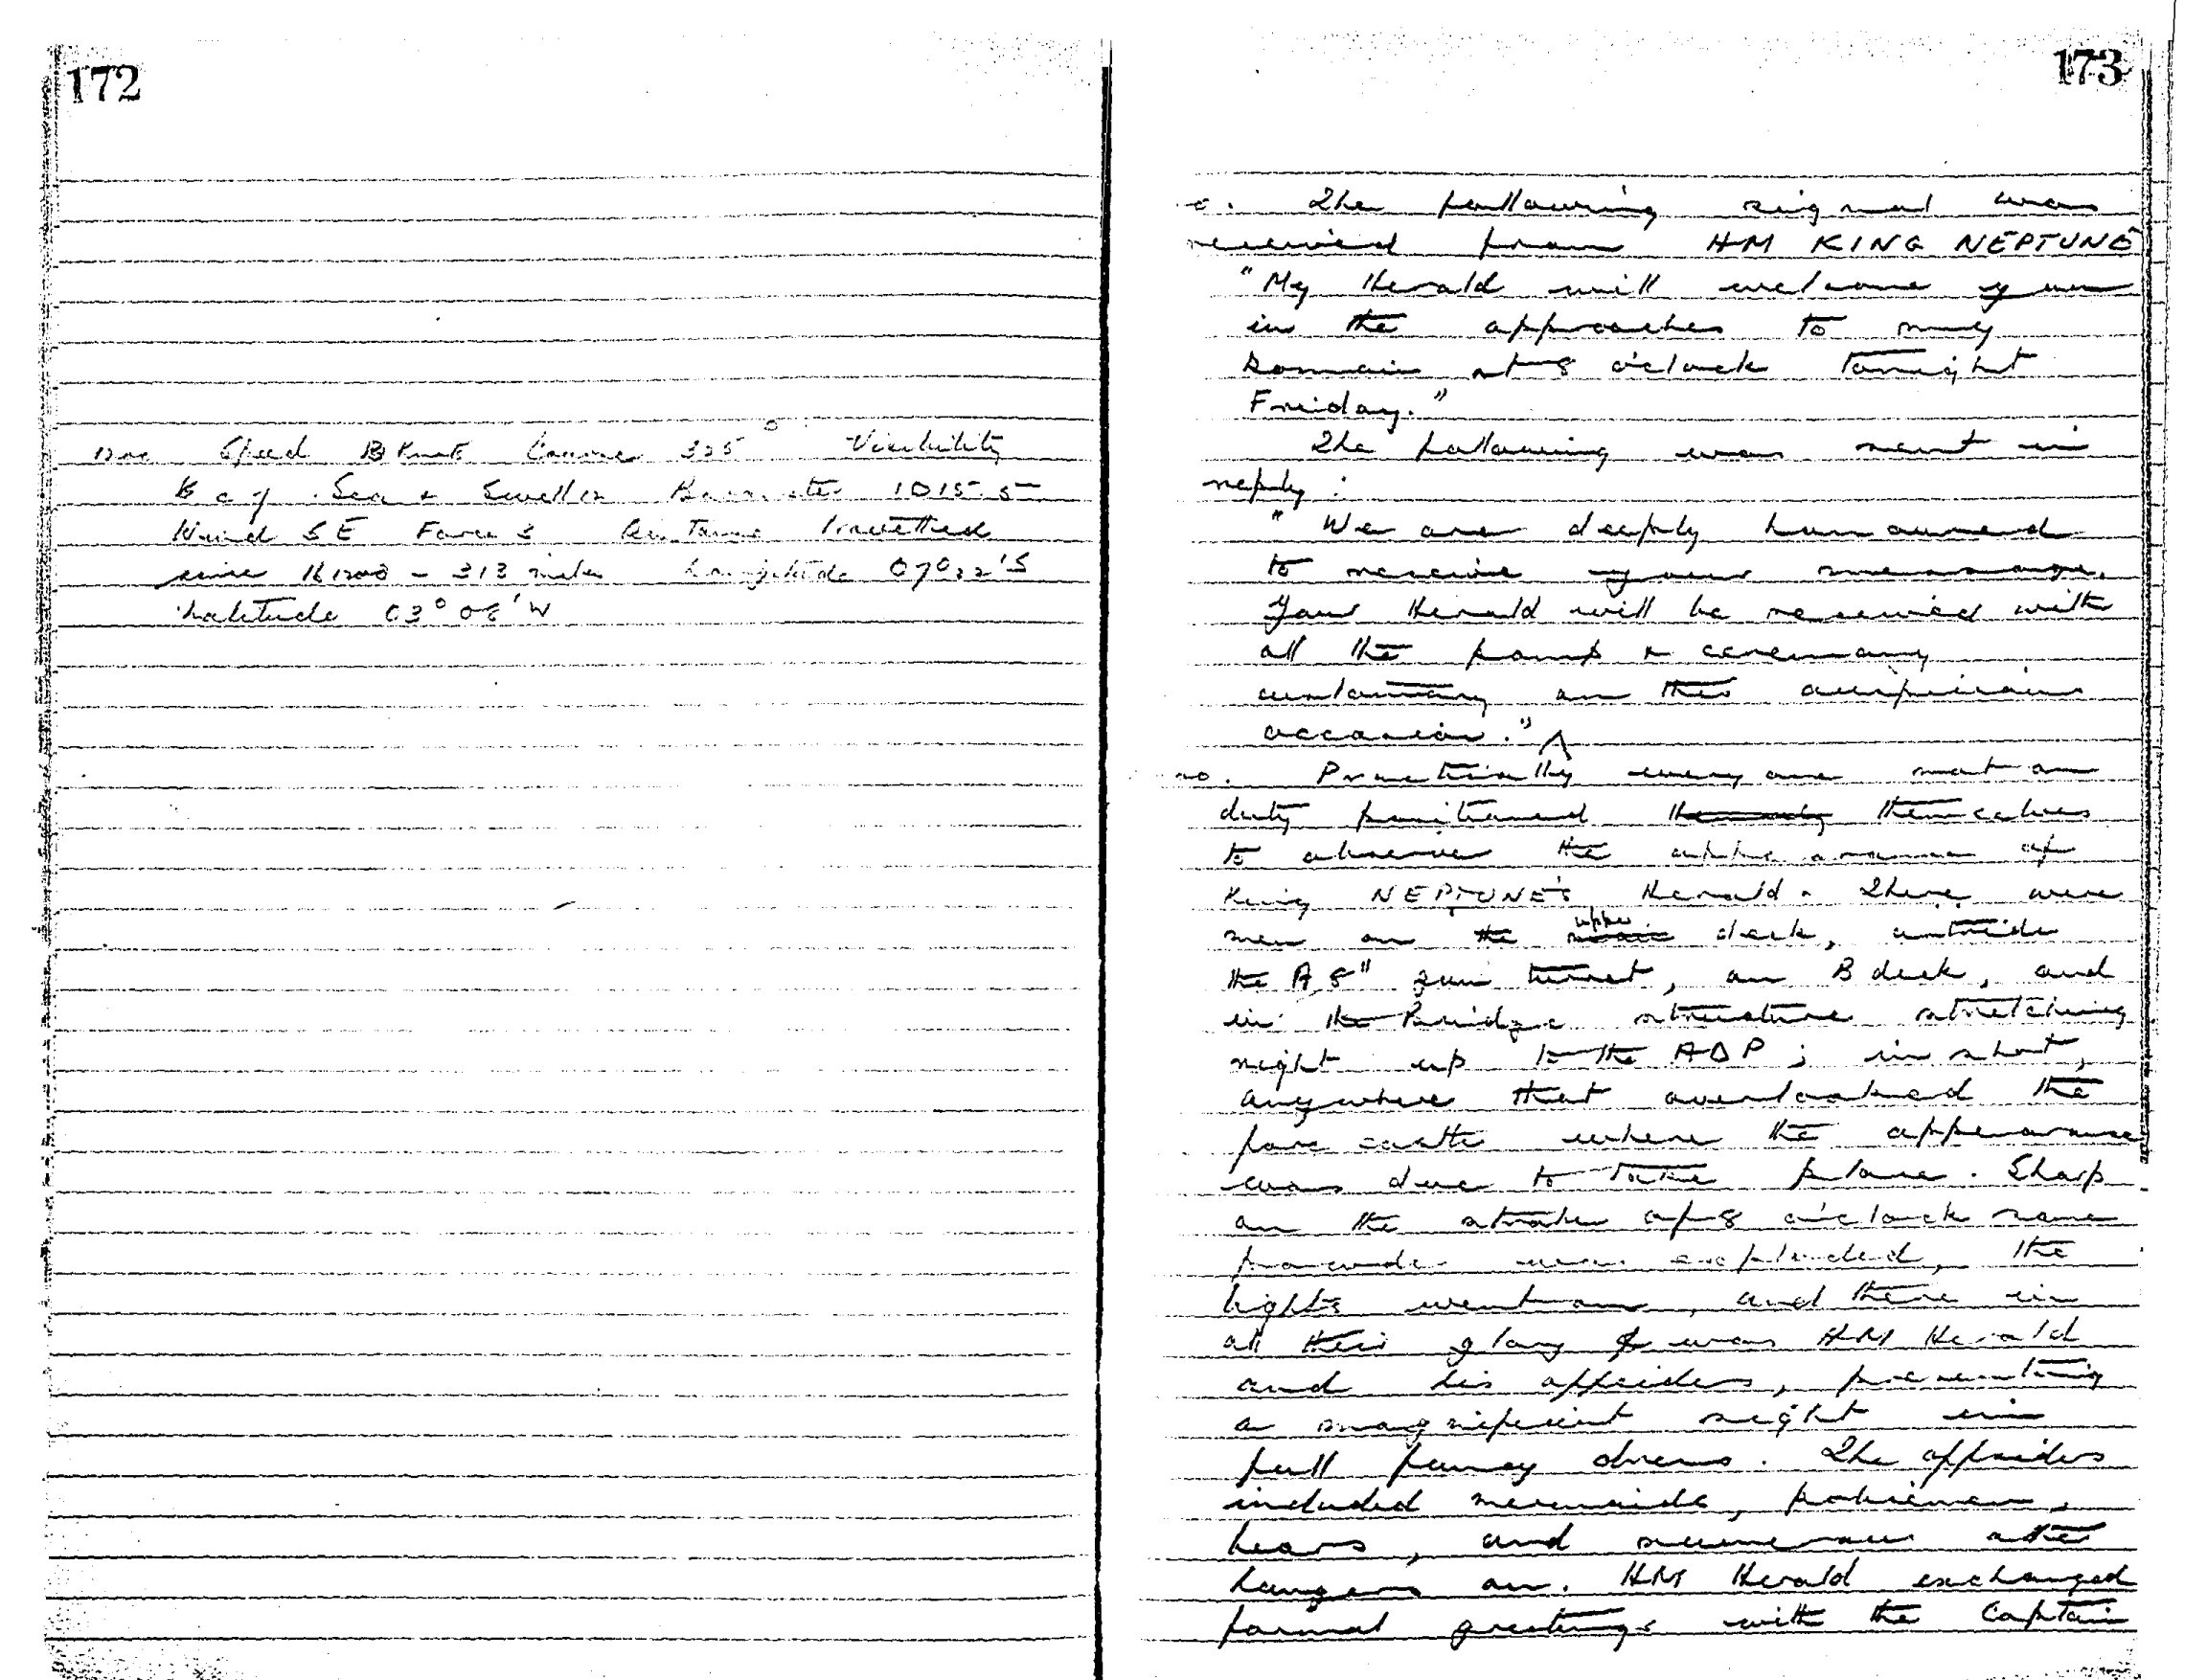 172
1200 Speed 13 Knots Course 325° Visibility
B c 7. Sea & Swell 12 Barometer 1015.5
Wind SE Force 3 Distance travelled
since 161200 - 313 miles Longitude 07°22'S
Latitude 03°08'W
173
The following signal was
received from HM KING NEPTUNE
"My Herald will welcome you
in the approaches to my
Domain at 8 o'clock tonight
Friday."
The following was sent in
reply:
"We are deeply honoured
to receive your message.
Your Herald will be received with
all the pomp & ceremony
customary on this auspicious
occasion."
Practically everyone not on
duty positioned themselves
to observe the appearance of
King NEPTUNE'S Herald. There were
men on the upper deck, outside
the A 8" gun turret, on B deck, and
in the Bridge structure stretching
right up to the ADP; in short,
anywhere that overlooked the
fore castle where the appearance
was due to take place. Sharp
on the stroke of 8 o'clock some
powder was exploded, the
lights went on, and there in
all their glory was HM Herald
and his officers, presenting
a magnificent sight in
full fancy dress. The officers
included mermaids, policemen,
bears, and numerous other
hangers on. HM Herald exchanged
formal greetings with the Captain